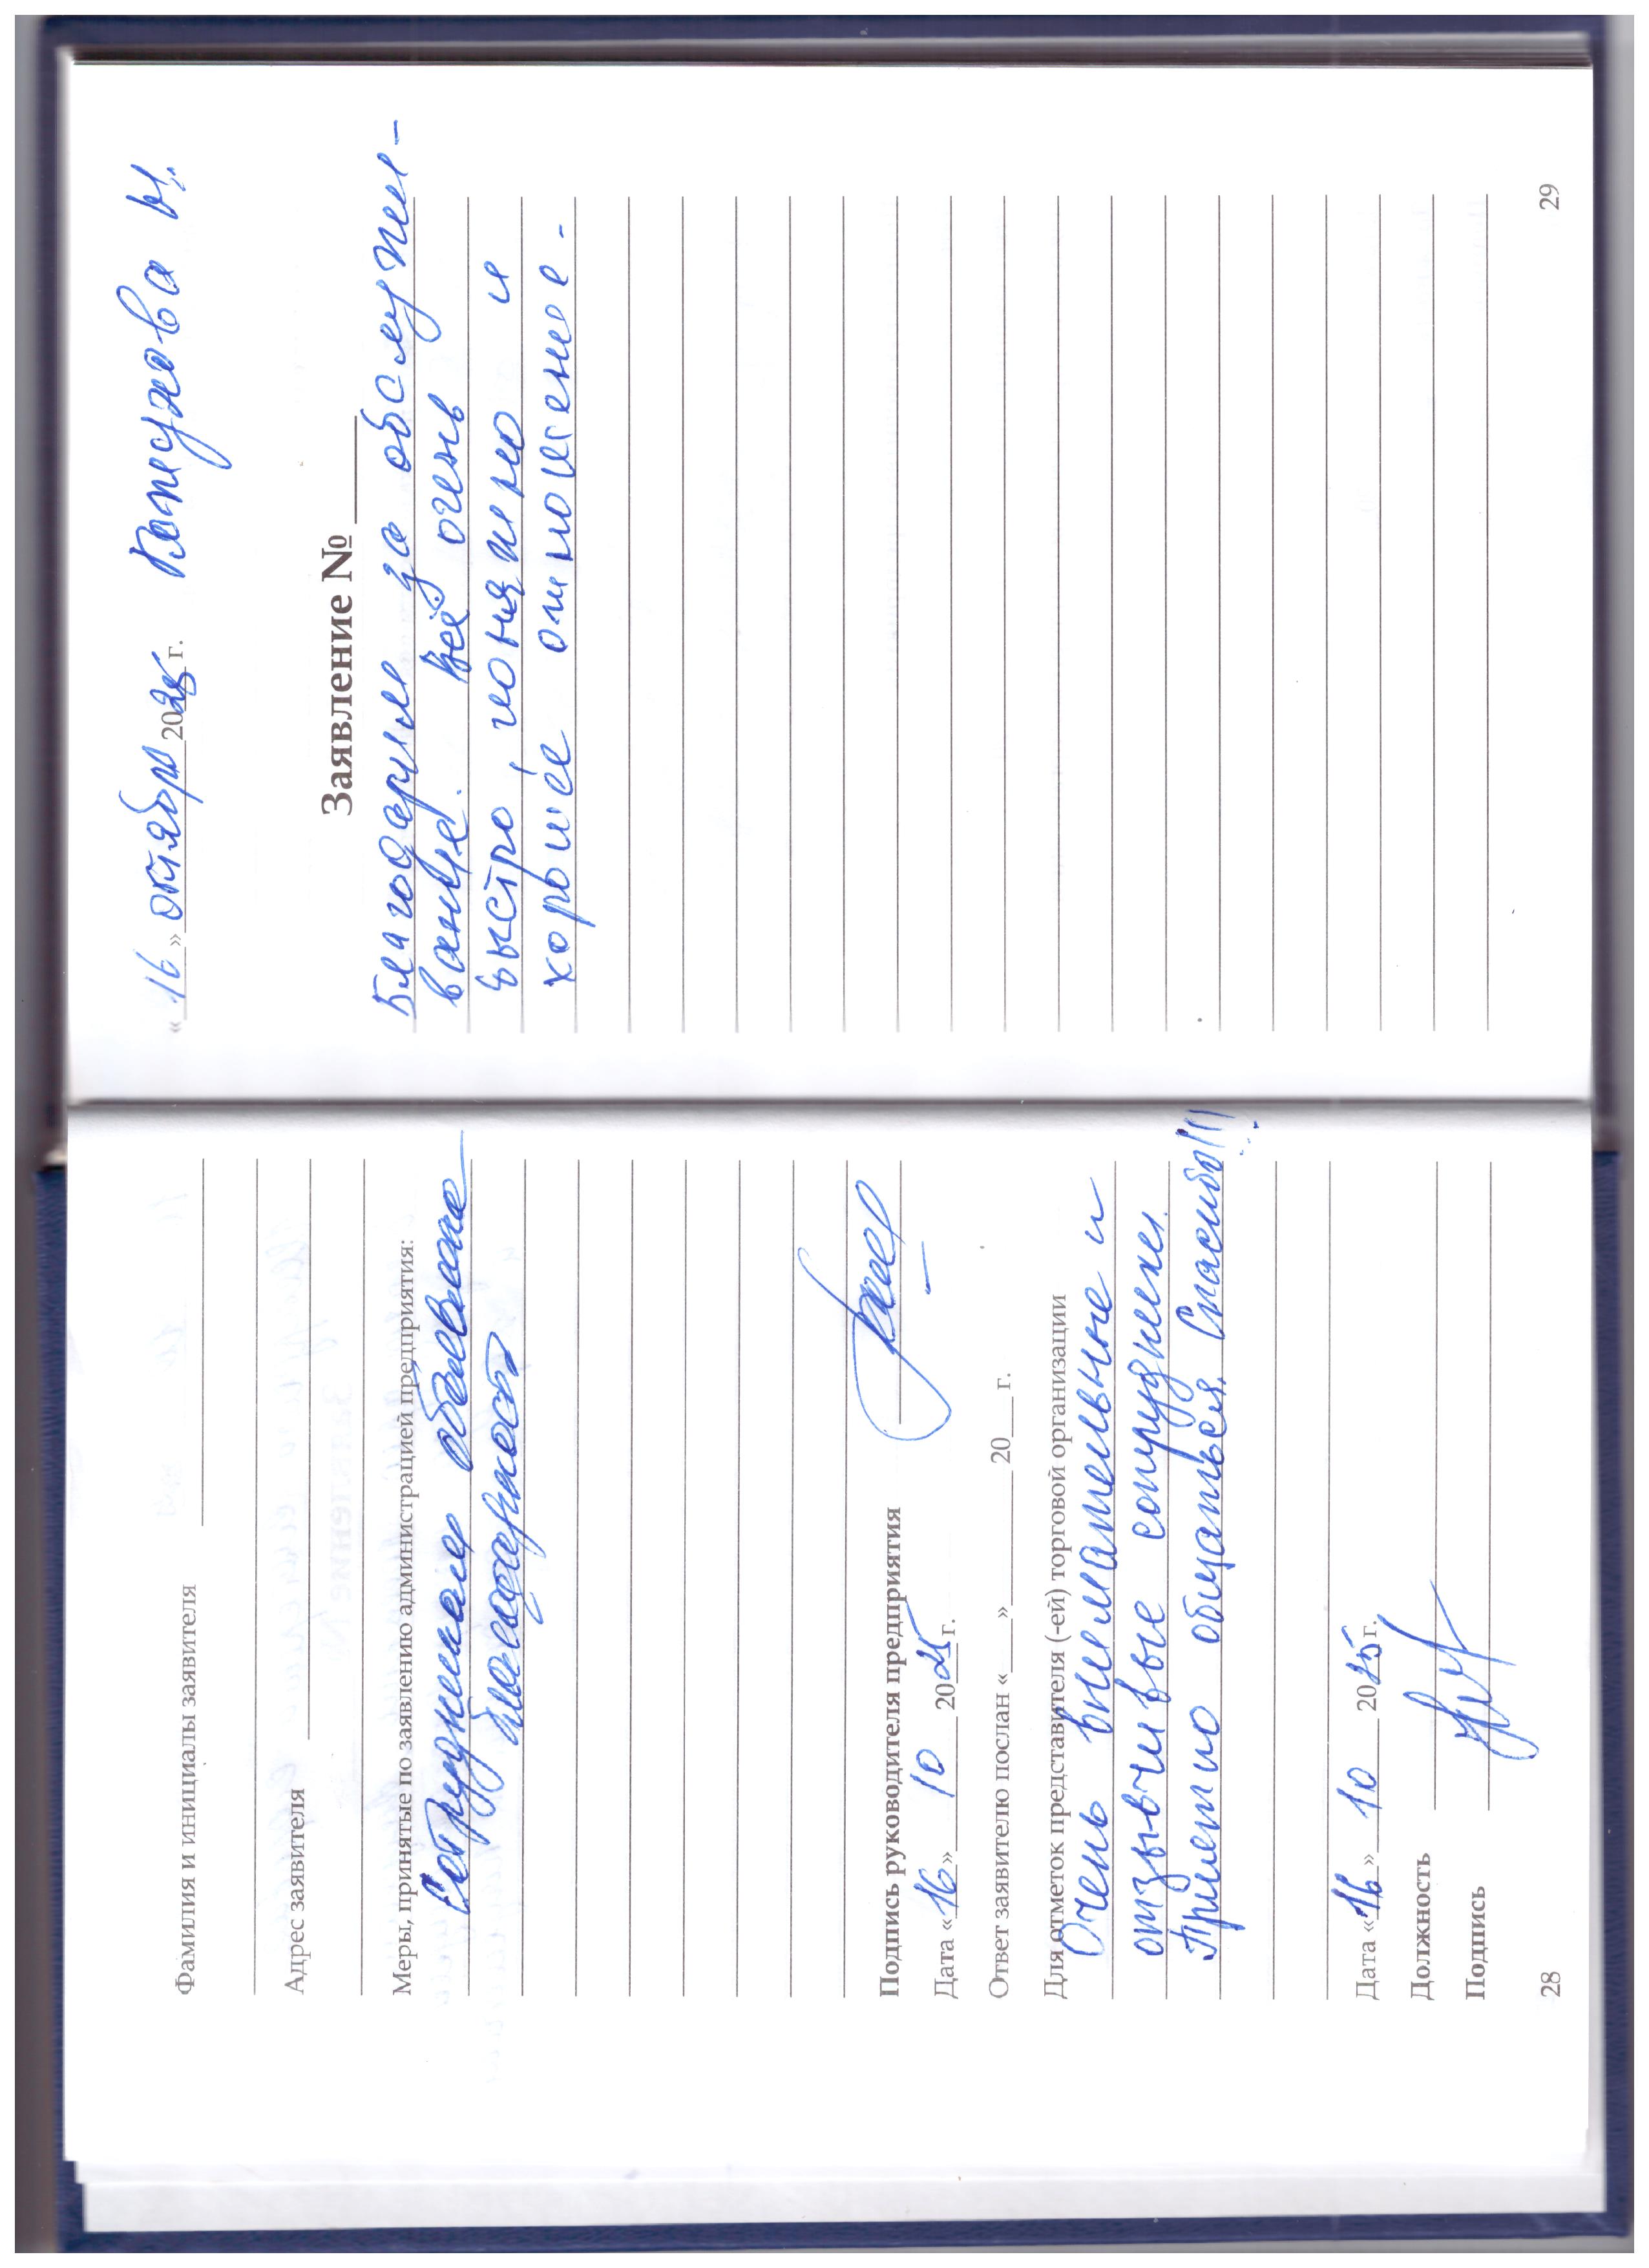 Фамилия и инициалы заявителя
Адрес заявителя
Меры, принятые по заявлению администрацией предприятия:
Сотруднику объявлена
благодарность
Подпись руководителя предприятия
Дата «16» 10 2025 г.
Ответ заявителю послан «___» ______ 20___ г.
Для отметок представителя (-ей) торговой организации
Очень внимательные и
отзывчивые сотрудники.
Приятно общаться. Спасибо!!!
Дата «16» 10 2025 г.
Должность
Подпись
28
«16» октября 2025 г.
Заявление № ____
Благодарим за обслужи-
вание. Всё очень
быстро, понятно и
хорошее отношение.
29